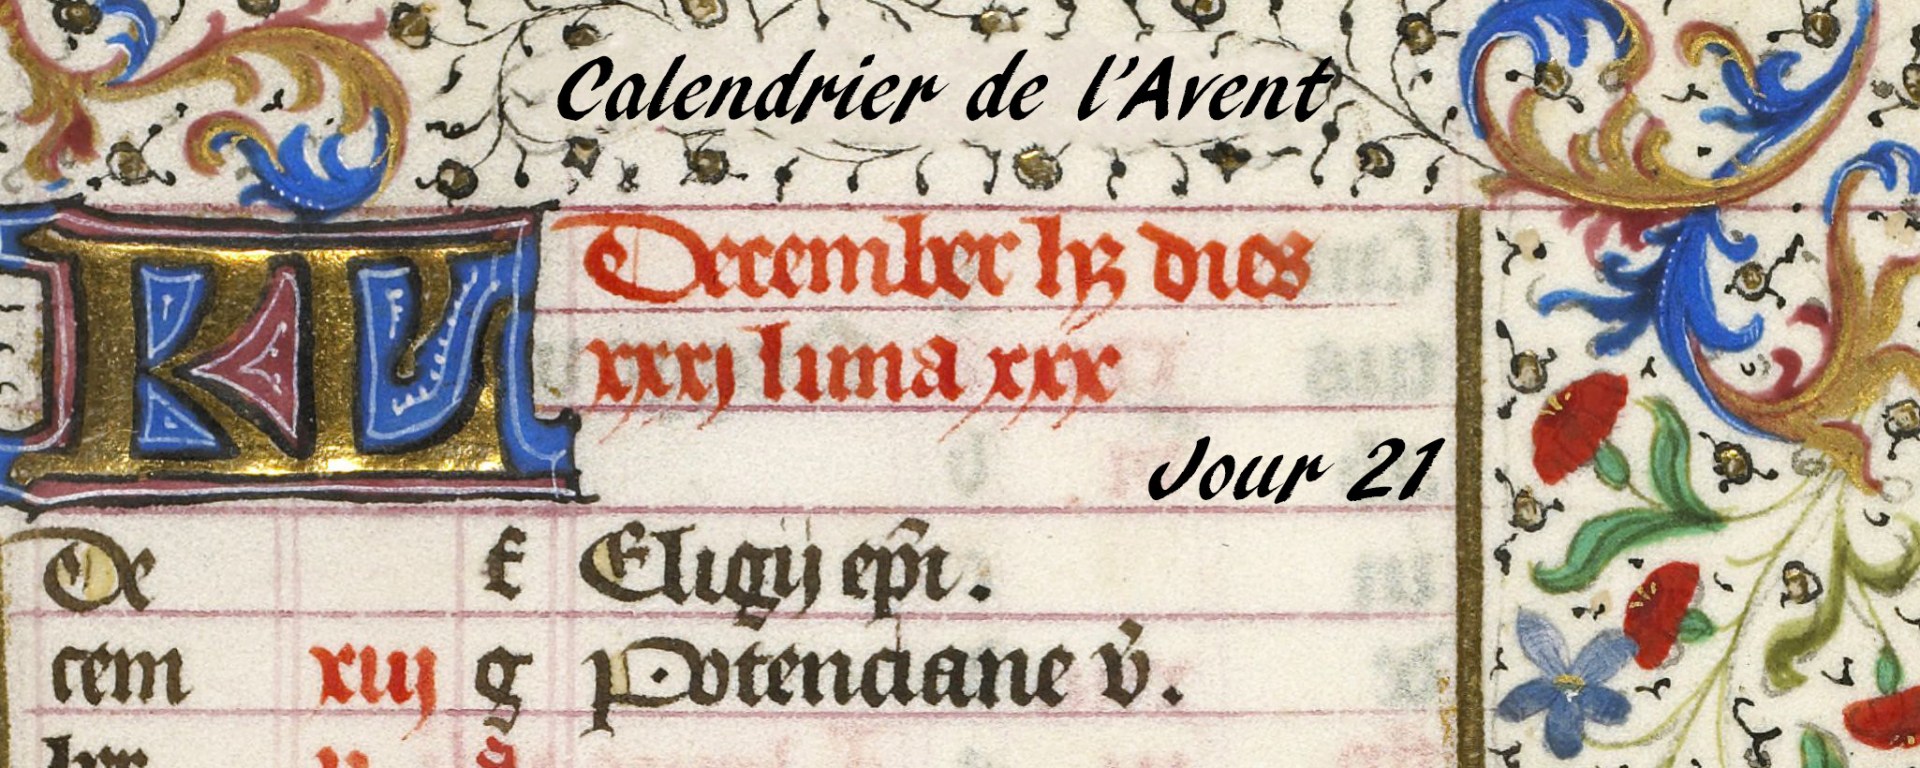 Calendrier de l'Avent
KL December hꝫ dies
xxxj luna xxx
Jour 21
De f Eligij epi.
cem xiij g Potenciane v̄.